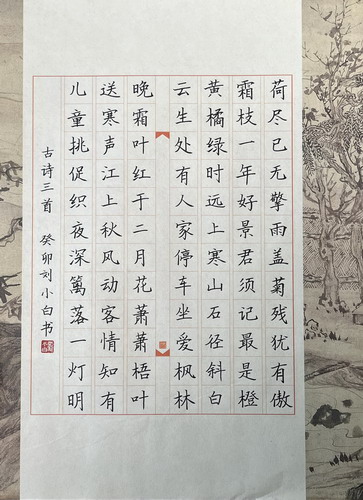 荷尽已无擎雨盖菊残犹有傲
霜枝一年好景君须记最是橙
黄橘绿时远上寒山石径斜白
云生处有人家停车坐爱枫林
晚霜叶红于二月花萧萧梧叶
送寒声江上秋风动客情知有
儿童挑促织夜深篱落一灯明
古诗三首 癸卯刘小白书